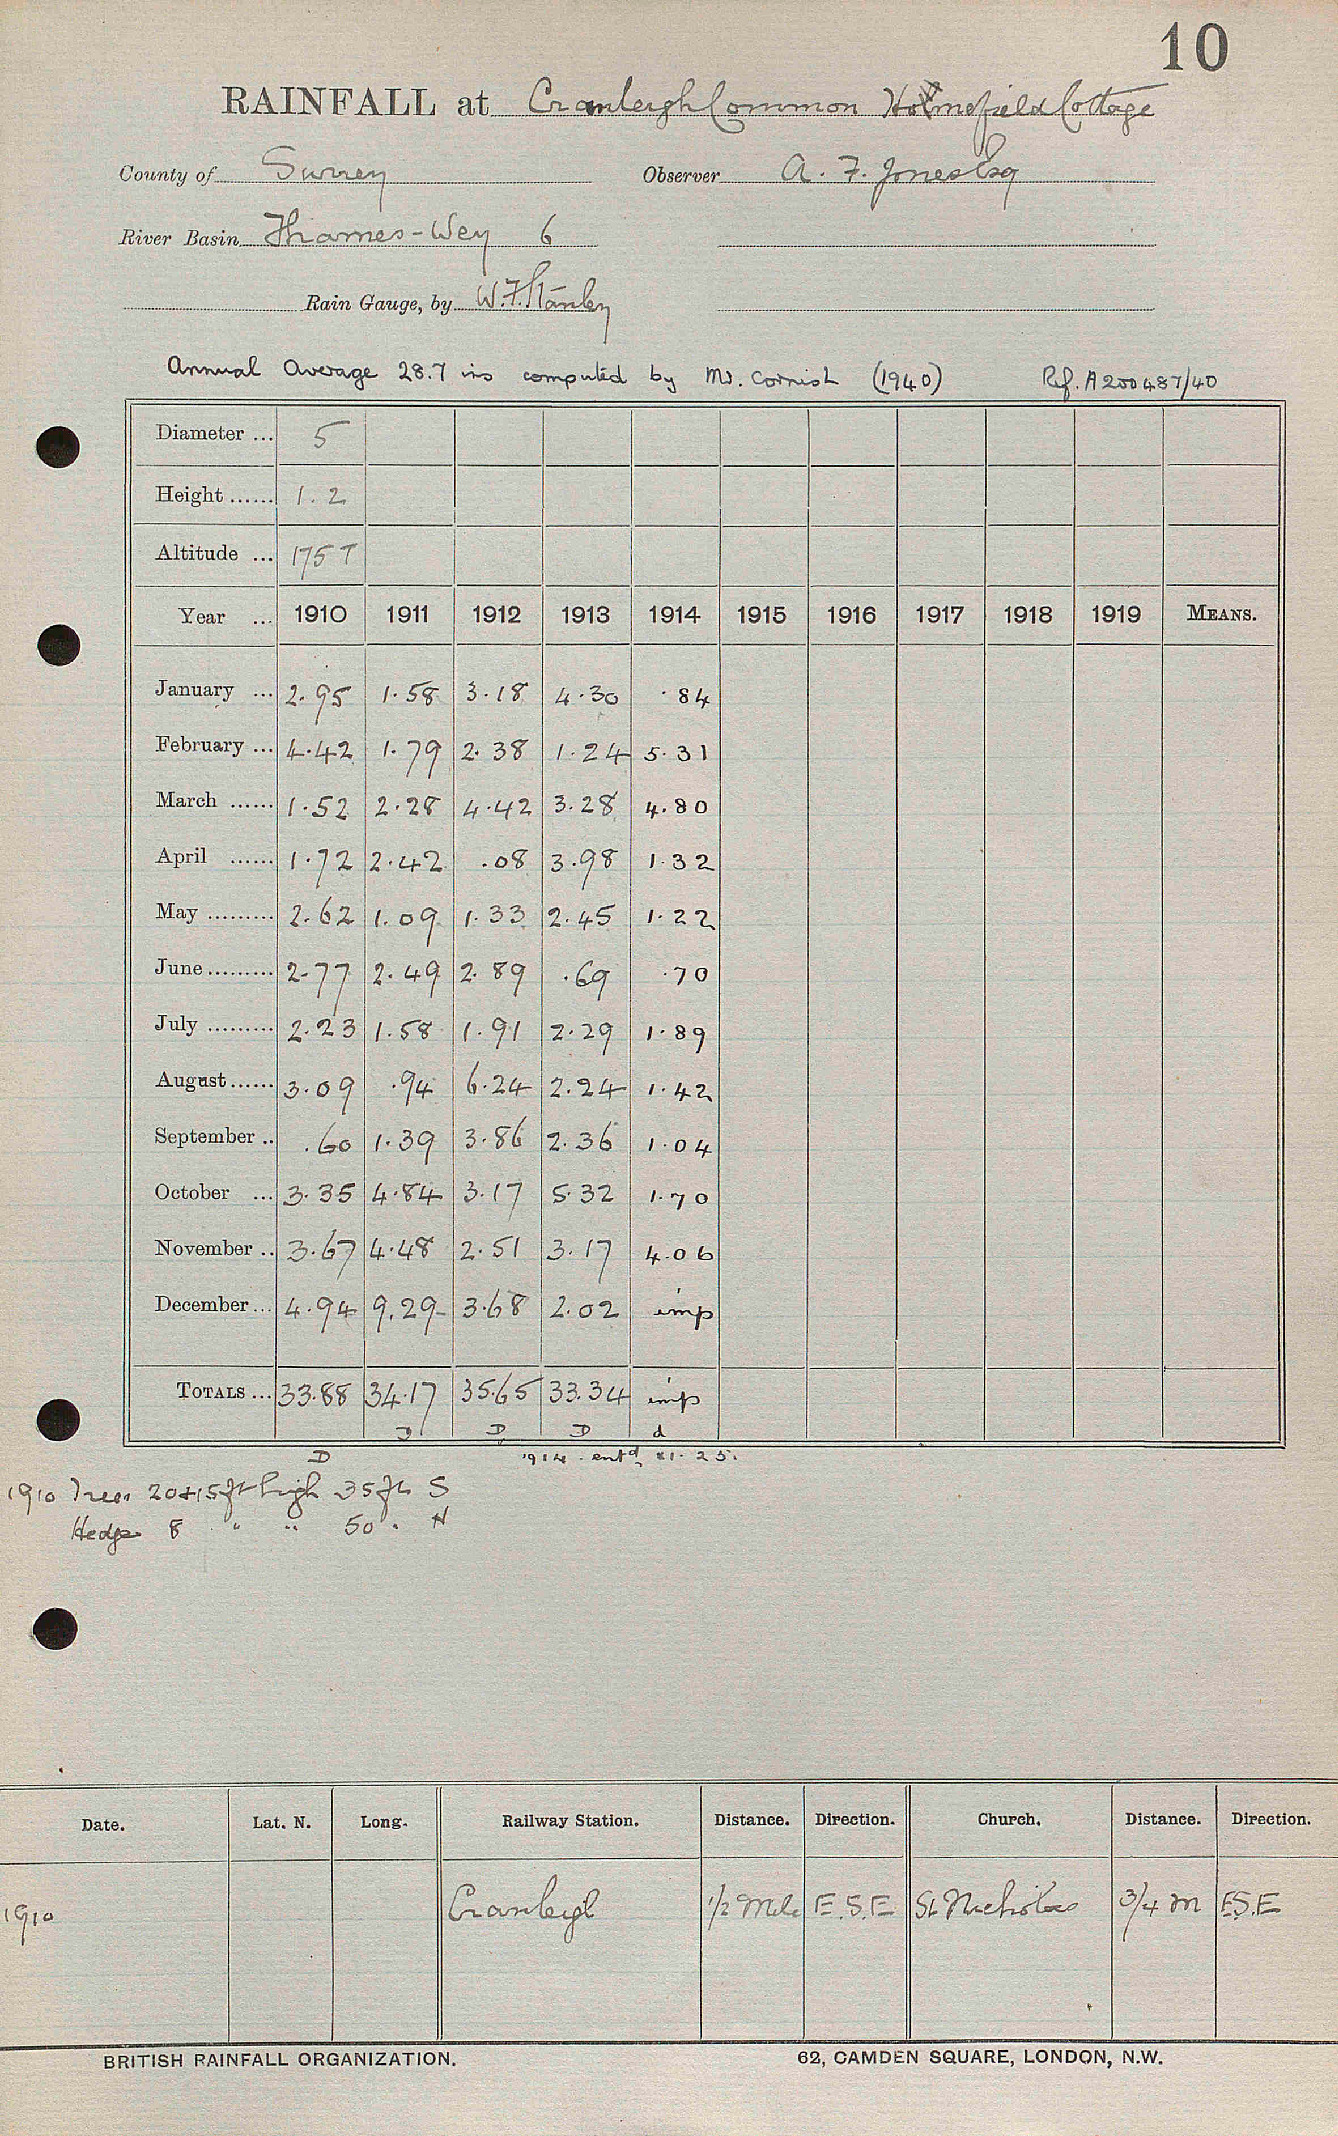 10
RAINFALL at Cranleigh Common Holmefield Cottage
County of Surrey Observer A. F. Jones Esq
River Basin Thames-Wey 6
Rain Gauge, by W.F. Stanley
Annual Average 28.7 ins computed by Mr. Cornish (1940) Ref. A200487/40
Diameter ... 5
Height ...... 1.2
Altitude ... 175 T
Year ... 1910 1911 1912 1913 1914 1915 1916 1917 1918 1919 MEANS.
January ... 2.95 1.58 3.18 4.30 .84
February ... 4.42 1.79 2.38 1.24 5.31
March ...... 1.52 2.28 4.42 3.28 4.80
April ...... 1.72 2.42 .08 3.98 1.32
May ......... 2.62 1.09 1.33 2.45 1.22
June ......... 2.77 2.49 2.89 .69 .70
July ......... 2.23 1.58 1.91 2.29 1.89
August ...... 3.09 .94 6.24 2.24 1.42
September .. .60 1.39 3.86 2.36 1.04
October ... 3.35 4.84 3.17 5.32 1.70
November .. 3.67 4.48 2.51 3.17 4.06
December ... 4.94 9.29 3.68 2.02 imp
TOTALS ... 33.88 34.17 35.65 33.34 imp
D D D d
D 1914 entd. 21.25.
1910 Trees 20+15 ft high 35 ft S
Hedge 8 " " 50 " N
Date. Lat. N. Long. Railway Station. Distance. Direction. Church. Distance. Direction.
1910 Cranleigh 1/2 Mile E.S.E St Nicholas 3/4 m E.S.E
BRITISH RAINFALL ORGANIZATION. 62, CAMDEN SQUARE, LONDON, N.W.